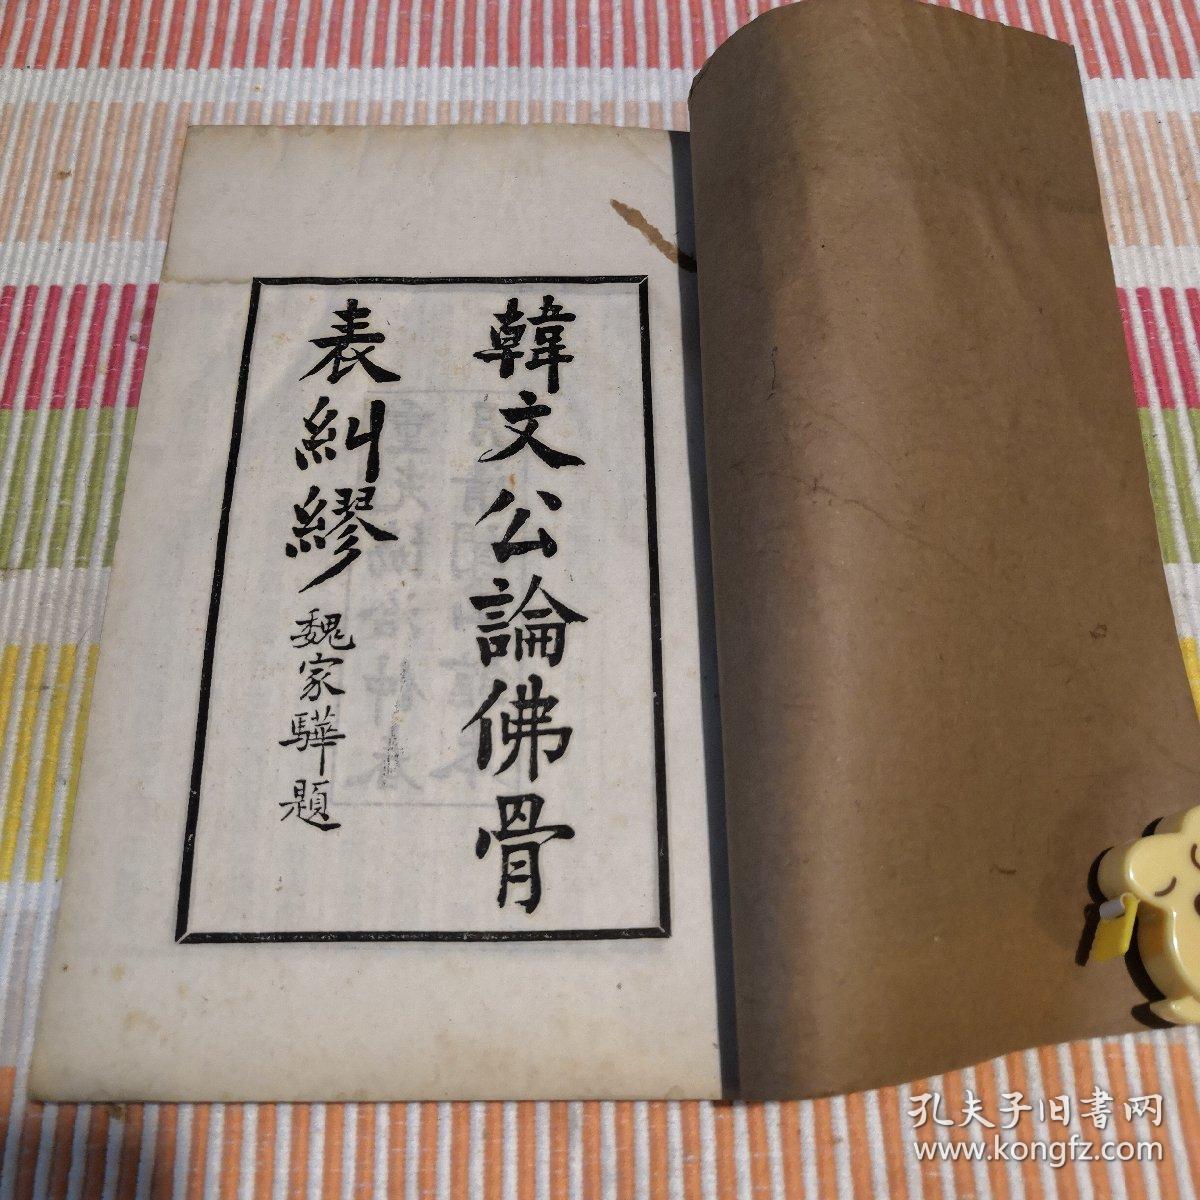 韓文公論佛骨
表糾繆
魏家驊題
孔夫子旧書网
www.kongfz.com